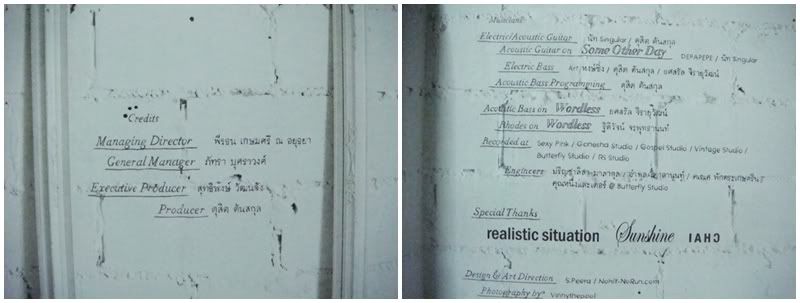 Credits
Managing Director พีรธน เกษมศรี ณ อยุธยา
General Manager ภัทรา บุศราวงศ์
Executive Producer สุทธิพงษ์ วัฒนจัง
Producer ดุสิต ตันสกุล
Musicians
Electric/Acoustic Guitar นัท Singular / ดุสิต ตันสกุล
Acoustic Guitar on Some Other Day DEPAPEPE / นัท Singular
Electric Bass Art หงษ์ซิ่ง / ดุสิต ตันสกุล / ยศสรัล จิรายุวัฒน์
Acoustic Bass Programming ดุสิต ตันสกุล
Acoustic Bass on Wordless ยศสรัล จิรายุวัฒน์
Rhodes on Wordless ฐิติวัจน์ จรพุทธานนท์
Recorded at Sexy Pink / Ganesha Studio / Gospel Studio / Vintage Studio /
Butterfly Studio / RS Studio
Engineers
คุณหนึ่งและเตอร์ @ Butterfly Studio
Special Thanks
realistic situation Sunshine CHAI
Design & Art Direction S.Peera / Nohit-NoRun.com
Photography by Vinnythepool